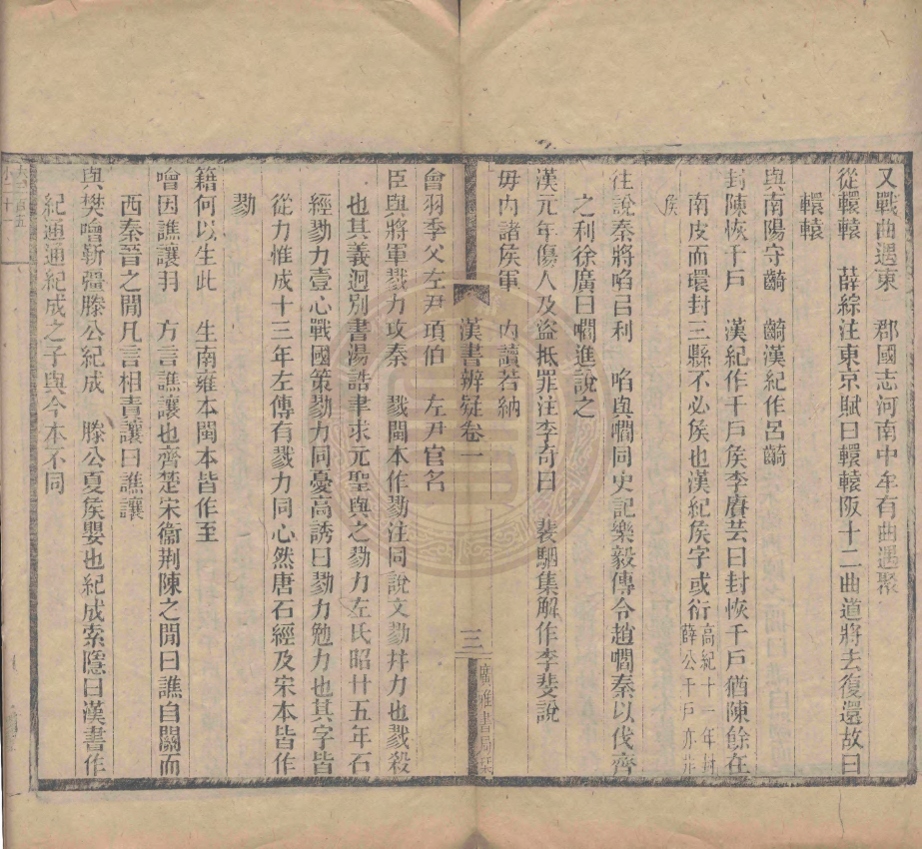 又戰曲遇東　郡國志河南中牟有曲遇聚
從轘轅　薛綜注東京賦曰轘轅阪十二曲道將去復還故曰
轘轅
與南陽守齮　齮漢紀作呂齮
封陳恢千戶　漢紀作千戶矦李賡芸曰封恢千戶猶陳餘在
南皮而環封三縣不必矦也漢紀矦字或衍高紀十一年封
薛公千戶亦非
矦
往說秦將啗㠯利　啗與㗖同史記樂毅傳令趙㗖秦以伐齊
之利徐廣曰㗖進說之
漢元年傷人及盜抵罪注李奇曰　裴駰集解作李斐說
毋內諸矦軍　內讀若納
漢書辨疑卷一
三
廣雅書局栞
會羽季父左尹項伯　左尹官名
臣與將軍戮力攻秦　戮閩本作勠注同說文勠幷力也戮殺
也其義迥別書湯誥聿求元聖與之勠力左氏昭廿五年石
經勠力壹心戰國策勠力同憂高誘曰勠力勉力也其字皆
從力惟成十三年左傳有戮力同心然唐石經及宋本皆作
勠
籍何以生此　生南雍本閩本皆作至
噲因譙讓羽　方言譙讓也齊楚宋衞荆陳之閒曰譙自關而
西秦晉之閒凡言相責讓曰譙讓
與樊噲靳彊滕公紀成　滕公夏矦嬰也紀成索隱曰漢書作
紀通通紀成之子與今本不同